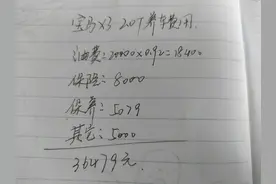 宝马X3 20万养车费用
油费:20000×0.92=18400
保险:8000
保养:5079
其它:5000
36479元.